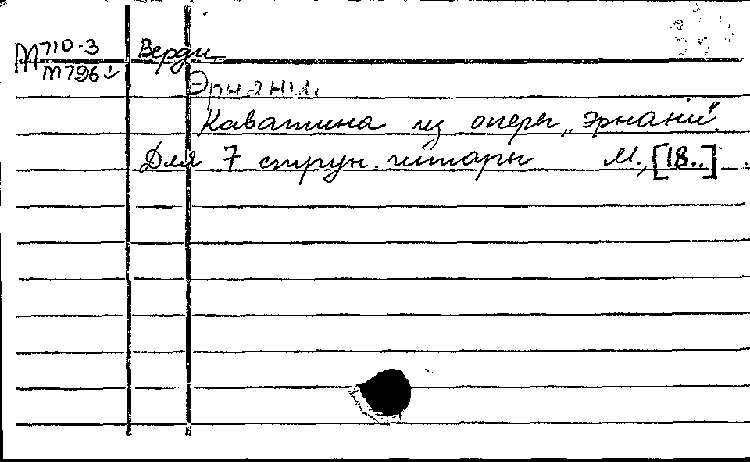 М 710-3 Верди
М 796
Эрнани.
Каватина из оперы „Эрнани“.
Для 7 струн. гитары М., [18..]